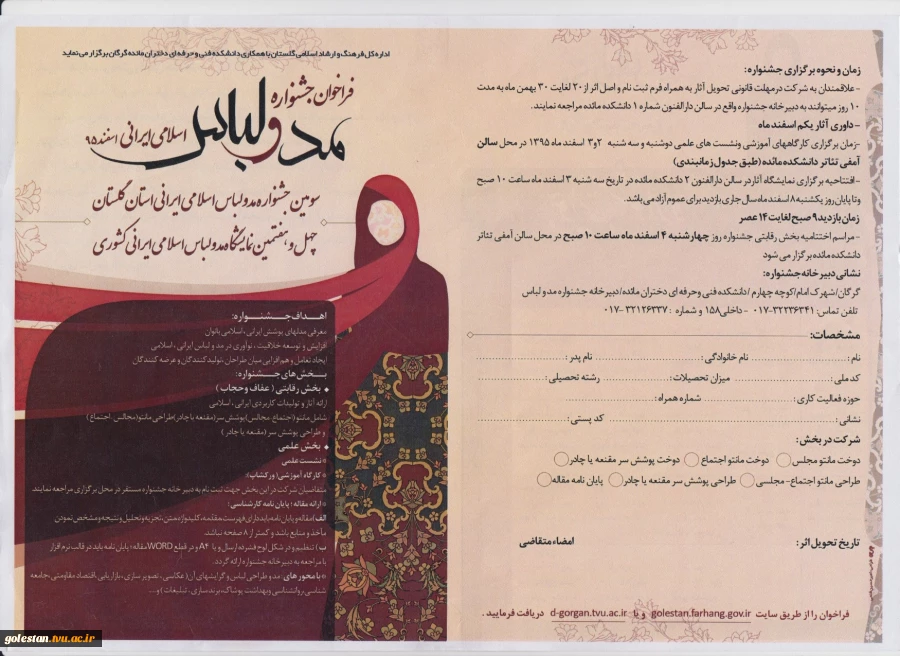 اداره کل فرهنگ و ارشاد اسلامی گلستان با همکاری دانشکده فنی و حرفه ای دختران مائده گرگان برگزار می نماید
فراخوان جشنواره
مد و لباس
اسلامی ایرانی اسفند ۹۵
سومین جشنواره مد و لباس اسلامی ایرانی استان گلستان
چهل و هفتمین نمایشگاه مد و لباس اسلامی ایرانی کشوری
اهداف جشنواره:
معرفی مدلهای پوشش ایرانی ، اسلامی بانوان
افزایش و توسعه خلاقیت ، نوآوری در مد و لباس ایرانی ، اسلامی
ایجاد تعامل و هم افزایی میان طراحان ،تولیدکنندگان و عرضه کنندگان
بخش های جشنواره:
بخش رقابتی ( عفاف و حجاب )
ارائه آثار و تولیدات کاربردی ایرانی ، اسلامی
شامل مانتو (اجتماع، مجالس) پوشش سر (مقنعه یا چادر) طراحی مانتو (مجالس ، اجتماع )
و طراحی پوشش سر (مقنعه یا چادر )
بخش علمی
* نشست علمی
* کارگاه آموزشی( ورکشاپ)*
متقاضیان شرکت در این بخش جهت ثبت نام به دبیر خانه جشنواره مستقر در محل برگزاری مراجعه نمایند.
* ارائه مقاله ؛ پایان نامه کارشناسی:
الف)مقاله و پایان نامه باید دارای فهرست،مقدمه، کلیدواژه،متن،تجزیه و تحلیل و نتیجه و مشخص نمودن
مأخذ و منابع باشد و کمتر از ۸ صفحه نباشد.
ب ) تنظیم و در شکل لوح فشرده ارسال و یا A۴ و در قطع WORD مقاله؛ پایان نامه باید در قالب نرم افزار
با مراجعه به دبیرخانه جشنواره ارائه گردد.
* با محور های: مد و طراحی لباس و گرایشهای آن( عکاسی ، تصویر سازی ، بازاریابی،اقتصاد مقاومتی،جامعه
شناسی روانشناسی وبهداشت پوشاک،برندسازی ، تبلیغات ) و...
زمان و نحوه برگزاری جشنواره:
-علاقمندان به شرکت در مهلت قانونی تحویل آثار به همراه فرم ثبت نام و اصل اثر از ۲۰ لغایت ۳۰ بهمن ماه به مدت
۱۰ روز میتوانند به دبیر خانه جشنواره واقع در سالن دارالفنون شماره ۱ دانشکده مائده مراجعه نمایند.
-داوری آثار یکم اسفند ماه
-زمان برگزاری کارگاههای آموزشی ونشست های علمی دوشنبه و سه شنبه ۲و۳ اسفند ماه ۱۳۹۵ در محل سالن
آمفی تئاتر دانشکده مائده (طبق جدول زمانبندی)
-افتتاحیه برگزاری نمایشگاه آثار در سالن دارالفنون ۲ دانشکده مائده در تاریخ سه شنبه ۳ اسفند ماه ساعت ۱۰ صبح
وتا پایان روز یکشنبه ۸ اسفند ماه سال جاری بازدید برای عموم آزاد می باشد.
زمان بازدید ۹ صبح لغایت ۱۴ عصر
-مراسم اختتامیه بخش رقابتی جشنواره روز چهارشنبه ۴ اسفند ماه ساعت ۱۰ صبح در محل سالن آمفی تئاتر
دانشکده مائده برگزار می شود
نشانی دبیر خانه جشنواره:
گرگان/شهرک امام/کوچه چهارم /دانشکده فنی وحرفه ای دختران مائده/دبیر خانه جشنواره مد و لباس
تلفن تماس: ۳۲۲۳۶۳۴۱-۰۱۷ - داخلی۱۵۸ و شماره : ۳۲۱۲۶۳۳۷-۰۱۷
مشخصات:
نام: نام خانوادگی: نام پدر:
کد ملی: میزان تحصیلات: رشته تحصیلی:
حوزه فعالیت کاری: شماره همراه:
نشانی: کد پستی:
شرکت در بخش:
دوخت مانتو مجلس دوخت مانتو اجتماع دوخت پوشش سر مقنعه یا چادر
طراحی مانتو اجتماع- مجلسی طراحی پوشش سر مقنعه یا چادر پایان نامه مقاله
تاریخ تحویل اثر: امضاء متقاضی
فراخوان را از طریق سایت golestan.farhang.gov.ir و یا d-gorgan.tvu.ac.ir دریافت فرمایید .
golestan.tvu.ac.ir